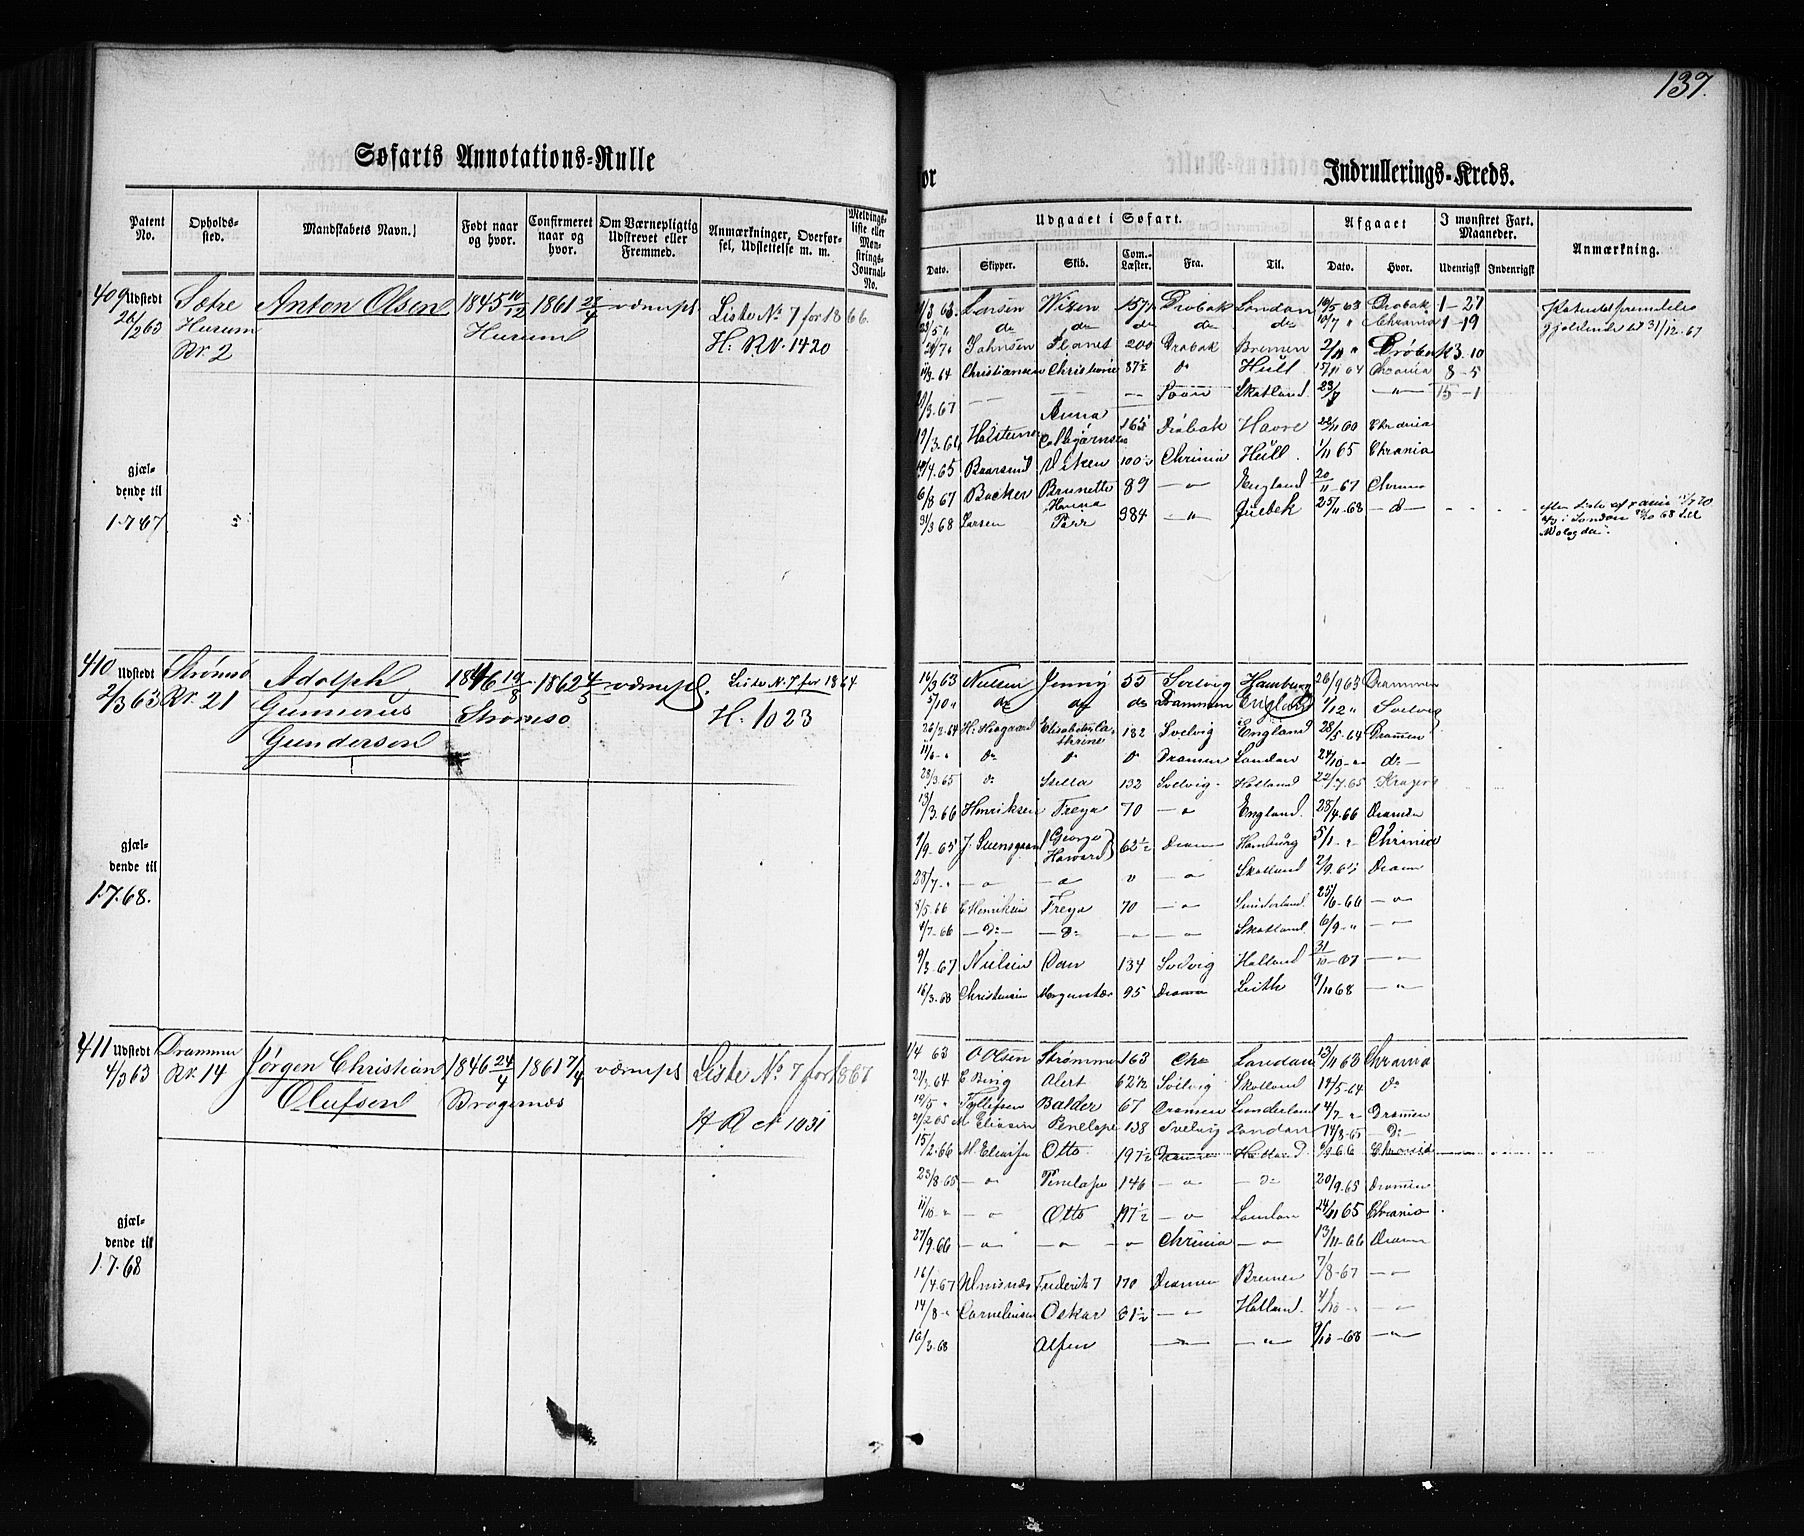 137.
Søfarts Annotations-Rulle
for
Indrullerings-Kreds.
Patent No.
Opholds-sted.
Mandskabets Navn.
Født naar og hvor.
Confirmeret naar og hvor.
Om Værnepligtig Udskrevet eller Fremmed.
Anmærkninger, Overførsel, Udslettelse m. m.
Meldings-liste eller Mon-strings-Journal-No.
Udgaaet i Søfart.
Afgaaet
I mønstret Fart. Maaneder.
Anmærkning.
Dato. Skipper. Skib. Com.-Læster. Fra. Til. Dato. Hvor. Udenrigst Indenrigst
409 Udstedt 26/2 63
Sætre Hurum Rr. 2
Anton Olsen
1845 10/12 Hurum
1861 27/4
værnepl
Liste No 7 for 1866.
H: RN. 1420
gjæl-
dende til
1.7.67
1/3 63 Larsen Wisen 157½ Drøbak London 16/5 63 Drøbak 1-27
23/5 " do do do do do 10/7 " Chrania 1-19
21/7 " Johnsen Planet 200 Drøbak Bremen 2/11 " Drøbak 3.10
11/3 64 Christiansen Christiane 87½ do Hull 15/11 64 Chrania 8-5
/3.67 Skotland 23/7 15-1
19/3.66 Anna 165 Drøbak Havre 22/11 60 Chrania
/4.65 Baarsrud Visken 100½ Chrinia Hull. 1/11 65 Chrania
6/8 67 Backer Brunette 89 England 20/11-67 Chrania
31/3 68 Larsen Hanna Parr 384 " Qvebek 25/11-68 -d-
Patentet fremdeles gjeldende til 31/12.67
410 Udstedt 2/3 63
Strømsø Rr. 21
Adolph
Gunnerus
Gundersen
1846 19/8 Strømsø
1862 4/5
værnepl.
Liste N. 7 for 1864
H: 1023
gjæl-
dende til
1.7.68.
16/3 63 Nielsen Jenny 55 Svelvig Hamburg 26/9 63 Drammen
5/10 " do do do Drammen England 1/12 " Svelvig
26/2-64 H. Haagaard Elisabeth Cathrine 182 Svelvig England 28/5-64 Dramen
11/6-" do do do Dramen London 24/10-" do-
28/3.65 do Stella 132 Svelvig. Holland 22/7.65 Kragerø
13/3.66 Henriksen Freya 70 -"- England. 28/4.66 Dramen
9/9-65 (George Howard) 62½ Dramen Hamburg 5/11-" Chrinia
28/7-" -"- -"- " -"- Skotland 2/9.65 Dramen
8/5-66 E Henriksen Freya 70 -"- Sunderland 25/6-66 -"-
4/7-66 -Do- -Do- -"- -"- Skotland 6/9-" -"-
9/3-67 Nielsen Dan 134 Svelvig Holland 31/10-67 -"-
16/3.68 Christensen 95 Dramen Leith 9/11 68 -"-
411 Udstedt 4/3 63
Drammen Rr. 14
Jørgen Christian
Olufsen
1846 24/4 Bragernæs
1861 7/4
værnepl
Liste No 7 for 1867
H R N 1031
gjæl-
dende til
1.7.68
1/4 63 O Olsen Strømmen 163 Cha London 13/11 63 Chrania
2/3 64 E Bing Alert 62½ Svelvig Skotland 14/5-64 do
19/5 " Tollefsen Balder 67 Dramen Sunderland 4/7-" Dramen
21/2 65 M Eliasen Penelope 138 Svelvig London 14/8-65 -Do-
15/2.66 M. Eliassen Otto 197½ Dramen Holland 6/9 66 Chrania
23/8.65 -"- Penelope 146 -"- -Do- 20/9.65 Dramen
11/10-" -"- Otto 197½ -"- London 24/11 65 Chrania
27/9.66 -"- -"- -"- Chrinia -"- 13/11-66 Dramen
16/4.67 Frederik 7 170 Dramen Bremen 7/8-67 -"-
14/8-" Corneliussen Oskar 81½ -"- Holland. 4/10-" -"-
16/3.68 Alfen -"- -"- 9/10-68 -"-